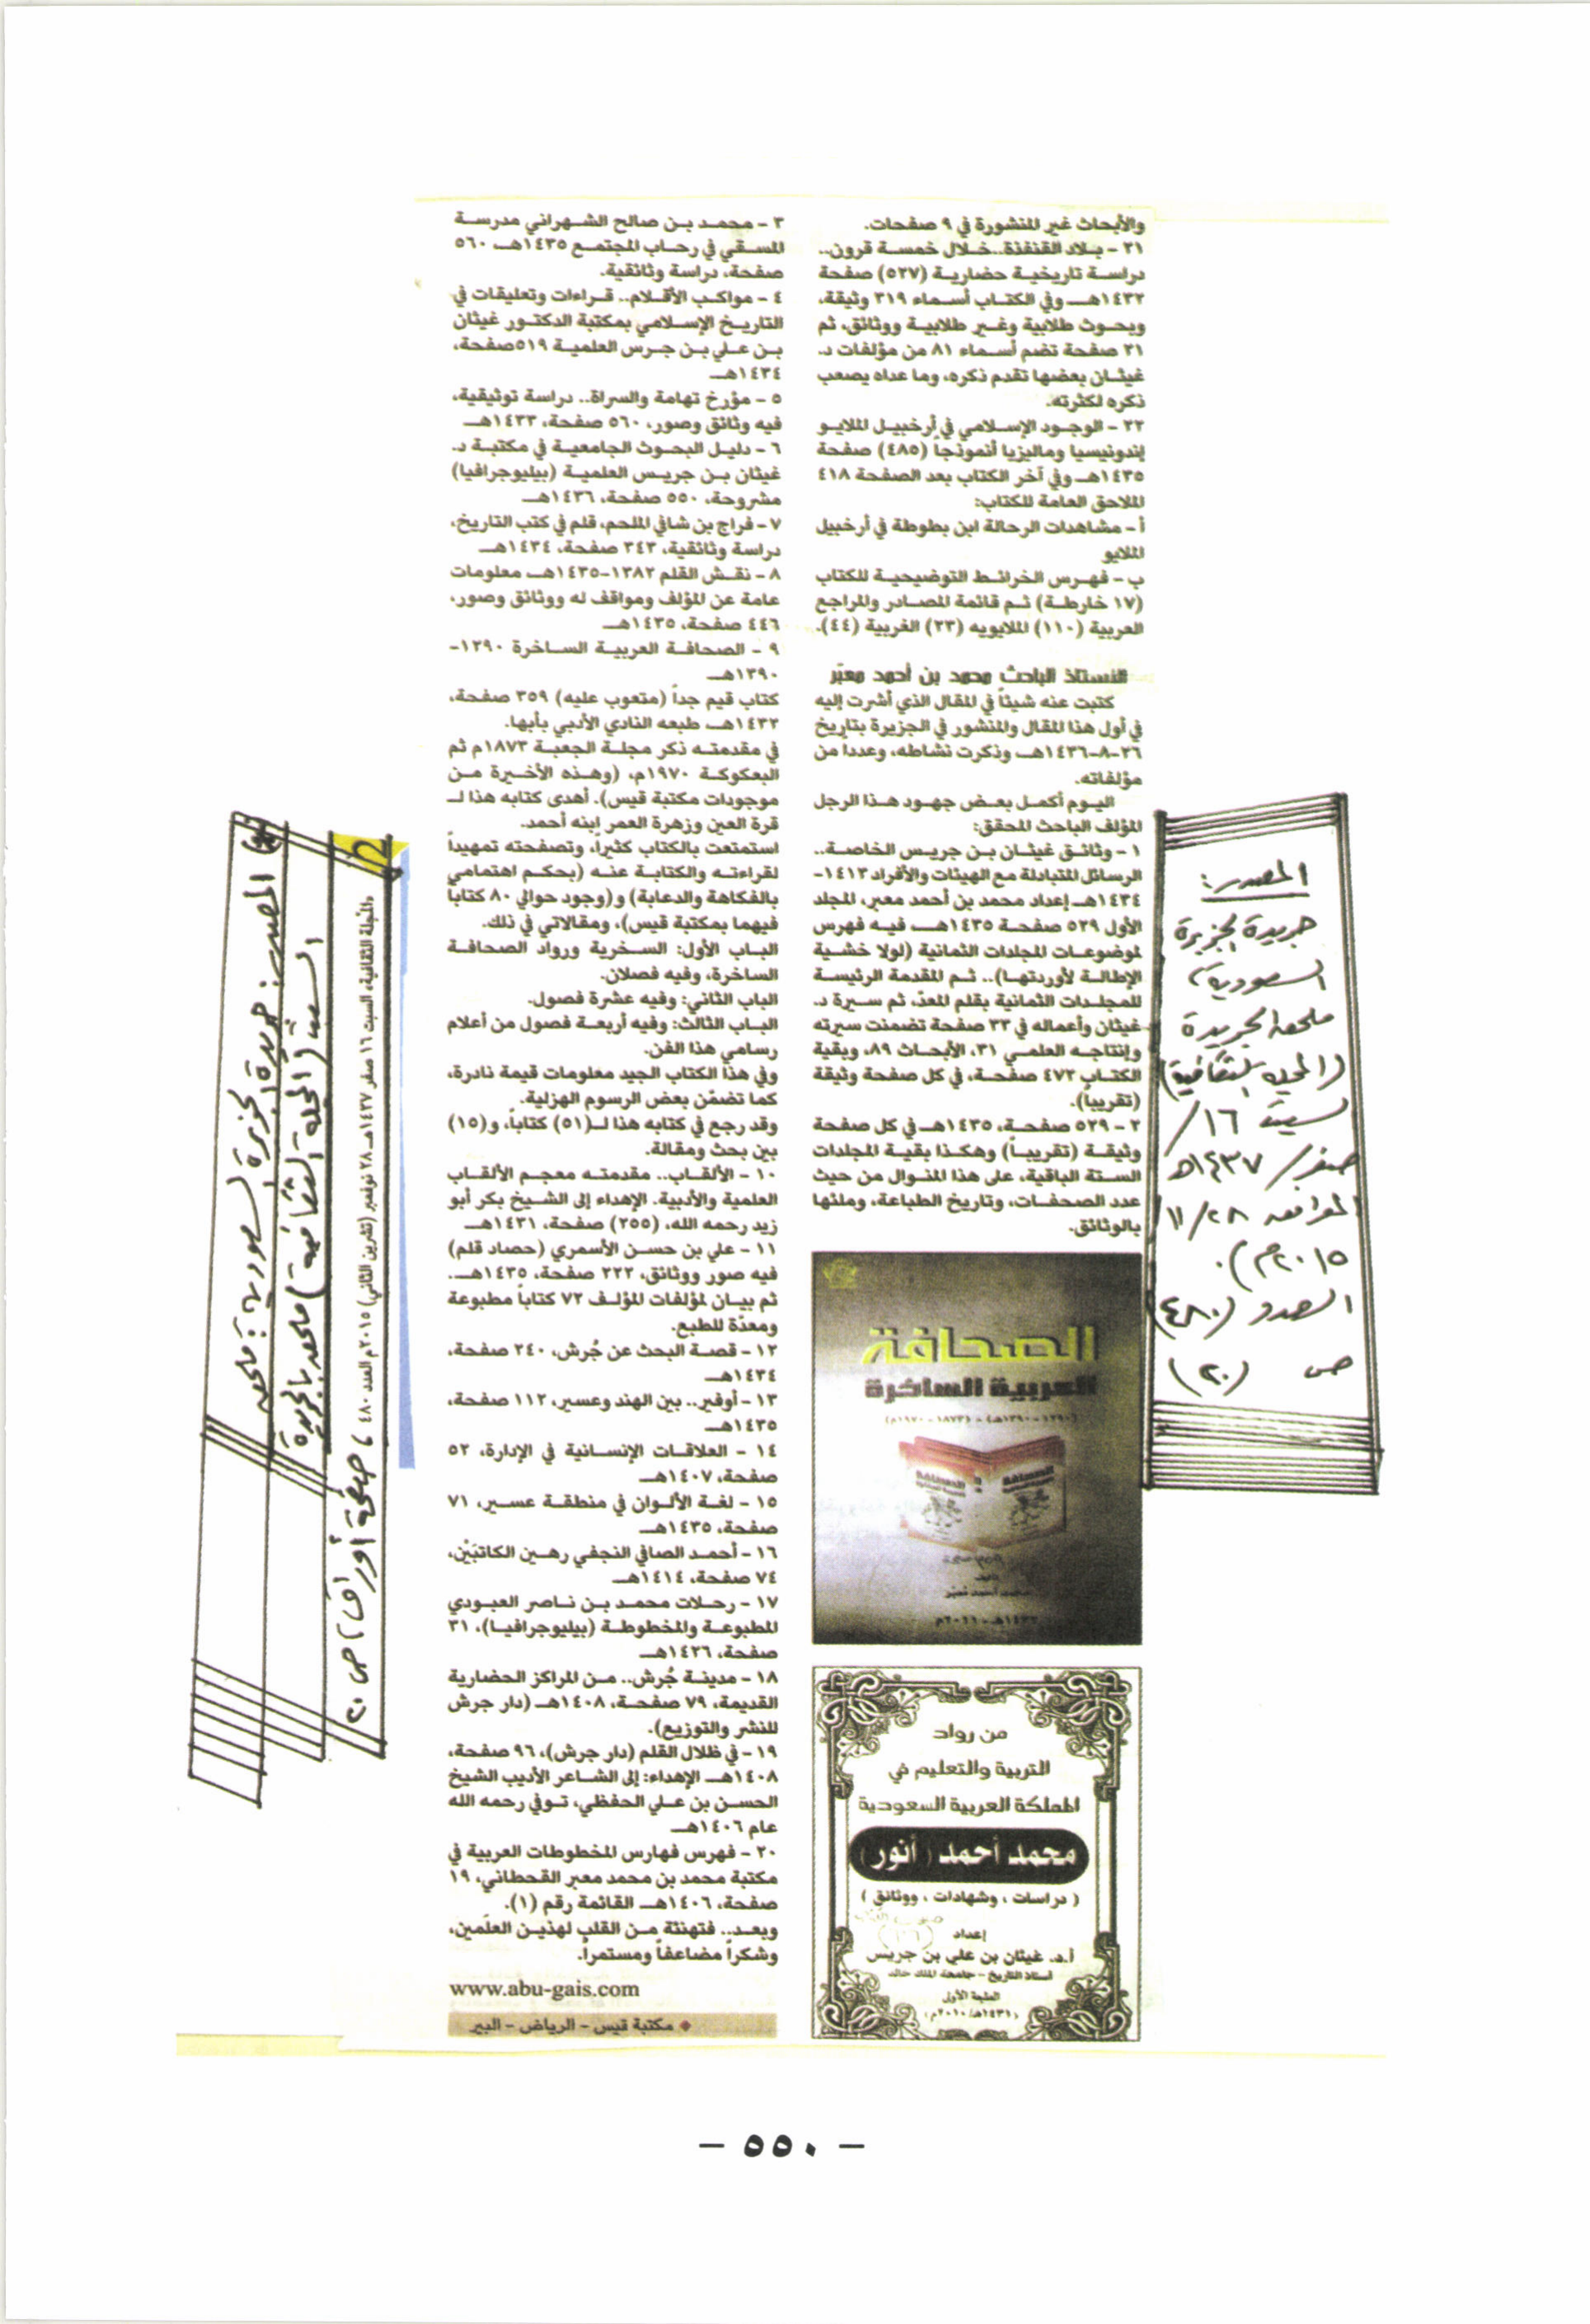 والأبحاث غير المنشورة في ٩ صفحات.
٢١ - بلاد القنفذة.. خلال خمسة قرون..
دراسة تاريخية حضارية (٥٢٧) صفحة
١٤٣٢هـ وفي الكتاب أسماء ٣١٩ وثيقة،
وبحوث طلابية وغير طلابية ووثائق، ثم
٣١ صفحة تضم أسماء ٨١ من مؤلفات د.
غيثان بعضها تقدم ذكره، وما عداه يصعب
ذكره لكثرته.
٢٢ - الوجود الإسلامي في أرخبيل الملايو
إندونيسيا وماليزيا أنموذجاً (٤٨٥) صفحة
١٤٣٥هـ وفي آخر الكتاب بعد الصفحة ٤١٨
الملاحق العامة للكتاب:
أ - مشاهدات الرحالة ابن بطوطة في أرخبيل
الملايو
ب - فهرس الخرائط التوضيحية للكتاب
(١٧ خارطة) ثم قائمة المصادر والمراجع
العربية (١١٠) الملايويه (٢٣) الغربية (٤٤).
الأستاذ الباحث محمد بن أحمد معبّر
كتبت عنه شيئاً في المقال الذي أشرت إليه
في أول هذا المقال والمنشور في الجزيرة بتاريخ
٢٦-٨-١٤٣٦هـ وذكرت نشاطه، وعددا من
مؤلفاته.
اليوم أكمل بعض جهود هذا الرجل
المؤلف الباحث المحقق:
١ - وثائق غيثان بن جريس الخاصة..
الرسائل المتبادلة مع الهيئات والأفراد ١٤١٣-
١٤٣٤هـ إعداد محمد بن أحمد معبر، المجلد
الأول ٥٢٩ صفحة ١٤٣٥هـ، فيه فهرس
لموضوعات المجلدات الثمانية (لولا خشية
الإطالة لأوردتها).. ثم المقدمة الرئيسة
للمجلدات الثمانية بقلم المعدّ، ثم سيرة د.
غيثان وأعماله في ٣٣ صفحة تضمنت سيرته
وإنتاجه العلمي ٣١، الأبحاث ٨٩، وبقية
الكتاب ٤٧٢ صفحة، في كل صفحة وثيقة
(تقريباً).
٢ - ٥٢٩ صفحة، ١٤٣٥هـ في كل صفحة
وثيقة (تقريباً) وهكذا بقية المجلدات
الستة الباقية، على هذا المنوال من حيث
عدد الصفحات، وتاريخ الطباعة، وملئها
بالوثائق.
الصحافة
العربية الساخرة
(١٢٩٠ - ١٣٩٠هـ) - (١٨٧٣ - ١٩٧٠م)
تأليف
محمد أحمد معبّر
١٤٣٢هـ - ٢٠١١م
من رواد
التربية والتعليم في
المملكة العربية السعودية
محمد أحمد (أنور)
( دراسات ، وشهادات ، ووثائق )
إعداد
أ.د. غيثان بن علي بن جريس
أستاذ التاريخ - جامعة الملك خالد
الطبعة الأولى
(١٤٣١هـ/٢٠١٠م)
٣ - محمد بن صالح الشهراني مدرسة
المسقي في رحاب المجتمع ١٤٣٥هـ ٥٦٠
صفحة، دراسة وثائقية.
٤ - مواكب الأقلام.. قراءات وتعليقات في
التاريخ الإسلامي بمكتبة الدكتور غيثان
بن علي بن جرس العلمية ٥١٩صفحة،
١٤٣٤هـ
٥ - مؤرخ تهامة والسراة.. دراسة توثيقية،
فيه وثائق وصور، ٥٦٠ صفحة، ١٤٣٣هـ
٦ - دليل البحوث الجامعية في مكتبة د.
غيثان بن جريس العلمية (بيليوجرافيا)
مشروحة، ٥٥٠ صفحة، ١٤٣٦هـ
٧ - فراج بن شافي الملحم، قلم في كتب التاريخ،
دراسة وثائقية، ٣٤٣ صفحة، ١٤٣٤هـ
٨ - نقش القلم ١٣٨٢-١٤٣٥هـ معلومات
عامة عن المؤلف ومواقف له ووثائق وصور،
٤٤٦ صفحة، ١٤٣٥هـ
٩ - الصحافة العربية الساخرة ١٢٩٠-
١٣٩٠هـ
كتاب قيم جداً (متعوب عليه) ٣٥٩ صفحة،
١٤٣٢هـ طبعه النادي الأدبي بأبها.
في مقدمته ذكر مجلة الجعبة ١٨٧٣م ثم
البعكوكة ١٩٧٠م، (وهذه الأخيرة من
موجودات مكتبة قيس). أهدى كتابه هذا لـ
قرة العين وزهرة العمر إبنه أحمد.
استمتعت بالكتاب كثيراً، وتصفحته تمهيداً
لقراءته والكتابة عنه (بحكم اهتمامي
بالفكاهة والدعابة) و(وجود حوالي ٨٠ كتاباً
فيهما بمكتبة قيس)، ومقالاتي في ذلك.
الباب الأول: السخرية ورواد الصحافة
الساخرة، وفيه فصلان.
الباب الثاني: وفيه عشرة فصول.
الباب الثالث: وفيه أربعة فصول من أعلام
رسامي هذا الفن.
وفي هذا الكتاب الجيد معلومات قيمة نادرة،
كما تضمّن بعض الرسوم الهزلية.
وقد رجع في كتابه هذا لـ(٥١) كتاباً، و(١٥)
بين بحث ومقالة.
١٠ - الألقاب.. مقدمته معجم الألقاب
العلمية والأدبية. الإهداء إلى الشيخ بكر أبو
زيد رحمه الله، (٢٥٥) صفحة، ١٤٣١هـ
١١ - علي بن حسن الأسمري (حصاد قلم)
فيه صور ووثائق، ٢٢٢ صفحة، ١٤٣٥هـ.
ثم بيان لمؤلفات المؤلف ٧٢ كتاباً مطبوعة
ومعدّة للطبع.
١٢ - قصة البحث عن جُرش، ٢٤٠ صفحة،
١٤٣٤هـ
١٣ - أوفير.. بين الهند وعسير، ١١٢ صفحة،
١٤٣٥هـ
١٤ - العلاقات الإنسانية في الإدارة، ٥٢
صفحة، ١٤٠٧هـ
١٥ - لغة الألوان في منطقة عسير، ٧١
صفحة، ١٤٣٥هـ
١٦ - أحمد الصافي النجفي رهين الكاتبَيْن،
٧٤ صفحة، ١٤١٤هـ
١٧ - رحلات محمد بن ناصر العبودي
المطبوعة والمخطوطة (بيليوجرافيا)، ٣١
صفحة، ١٤٢٦هـ
١٨ - مدينة جُرش.. من المراكز الحضارية
القديمة، ٧٩ صفحة، ١٤٠٨هـ (دار جرش
للنشر والتوزيع).
١٩ - في ظلال القلم (دار جرش)، ٩٦ صفحة،
١٤٠٨هـ الإهداء: إلى الشاعر الأديب الشيخ
الحسن بن علي الحفظي، توفي رحمه الله
عام ١٤٠٦هـ
٢٠ - فهرس فهارس المخطوطات العربية في
مكتبة محمد بن محمد معبر القحطاني، ١٩
صفحة، ١٤٠٦هـ القائمة رقم (١).
وبعد.. فتهنئة من القلب لهذين العلَمين،
وشكراً مضاعفاً ومستمراً.
www.abu-gais.com
مكتبة قيس - الرياض - البير
المصدر:
جريدة الجزيرة
السعودية،
ملحق الجريدة
(المجلة الثقافية)
سبت ١٦/
صفر/ ١٤٣٧هـ
الموافق ٢٨/١١
٢٠١٥م).
العدد (٤٨٠)
ص (٢٠)
المصدر: جريدة الجزيرة السعودية: ملحق
السبت (المجلة الثقافية) ملحق بالجريدة
المجلة الثقافية، السبت ١٦ صفر ١٤٣٧هـ ٢٨ نوفمبر (تشرين الثاني) ٢٠١٥م العدد ٤٨٠ ، صفحة أوراق، ص ٢٠
- ٥٥٠ -